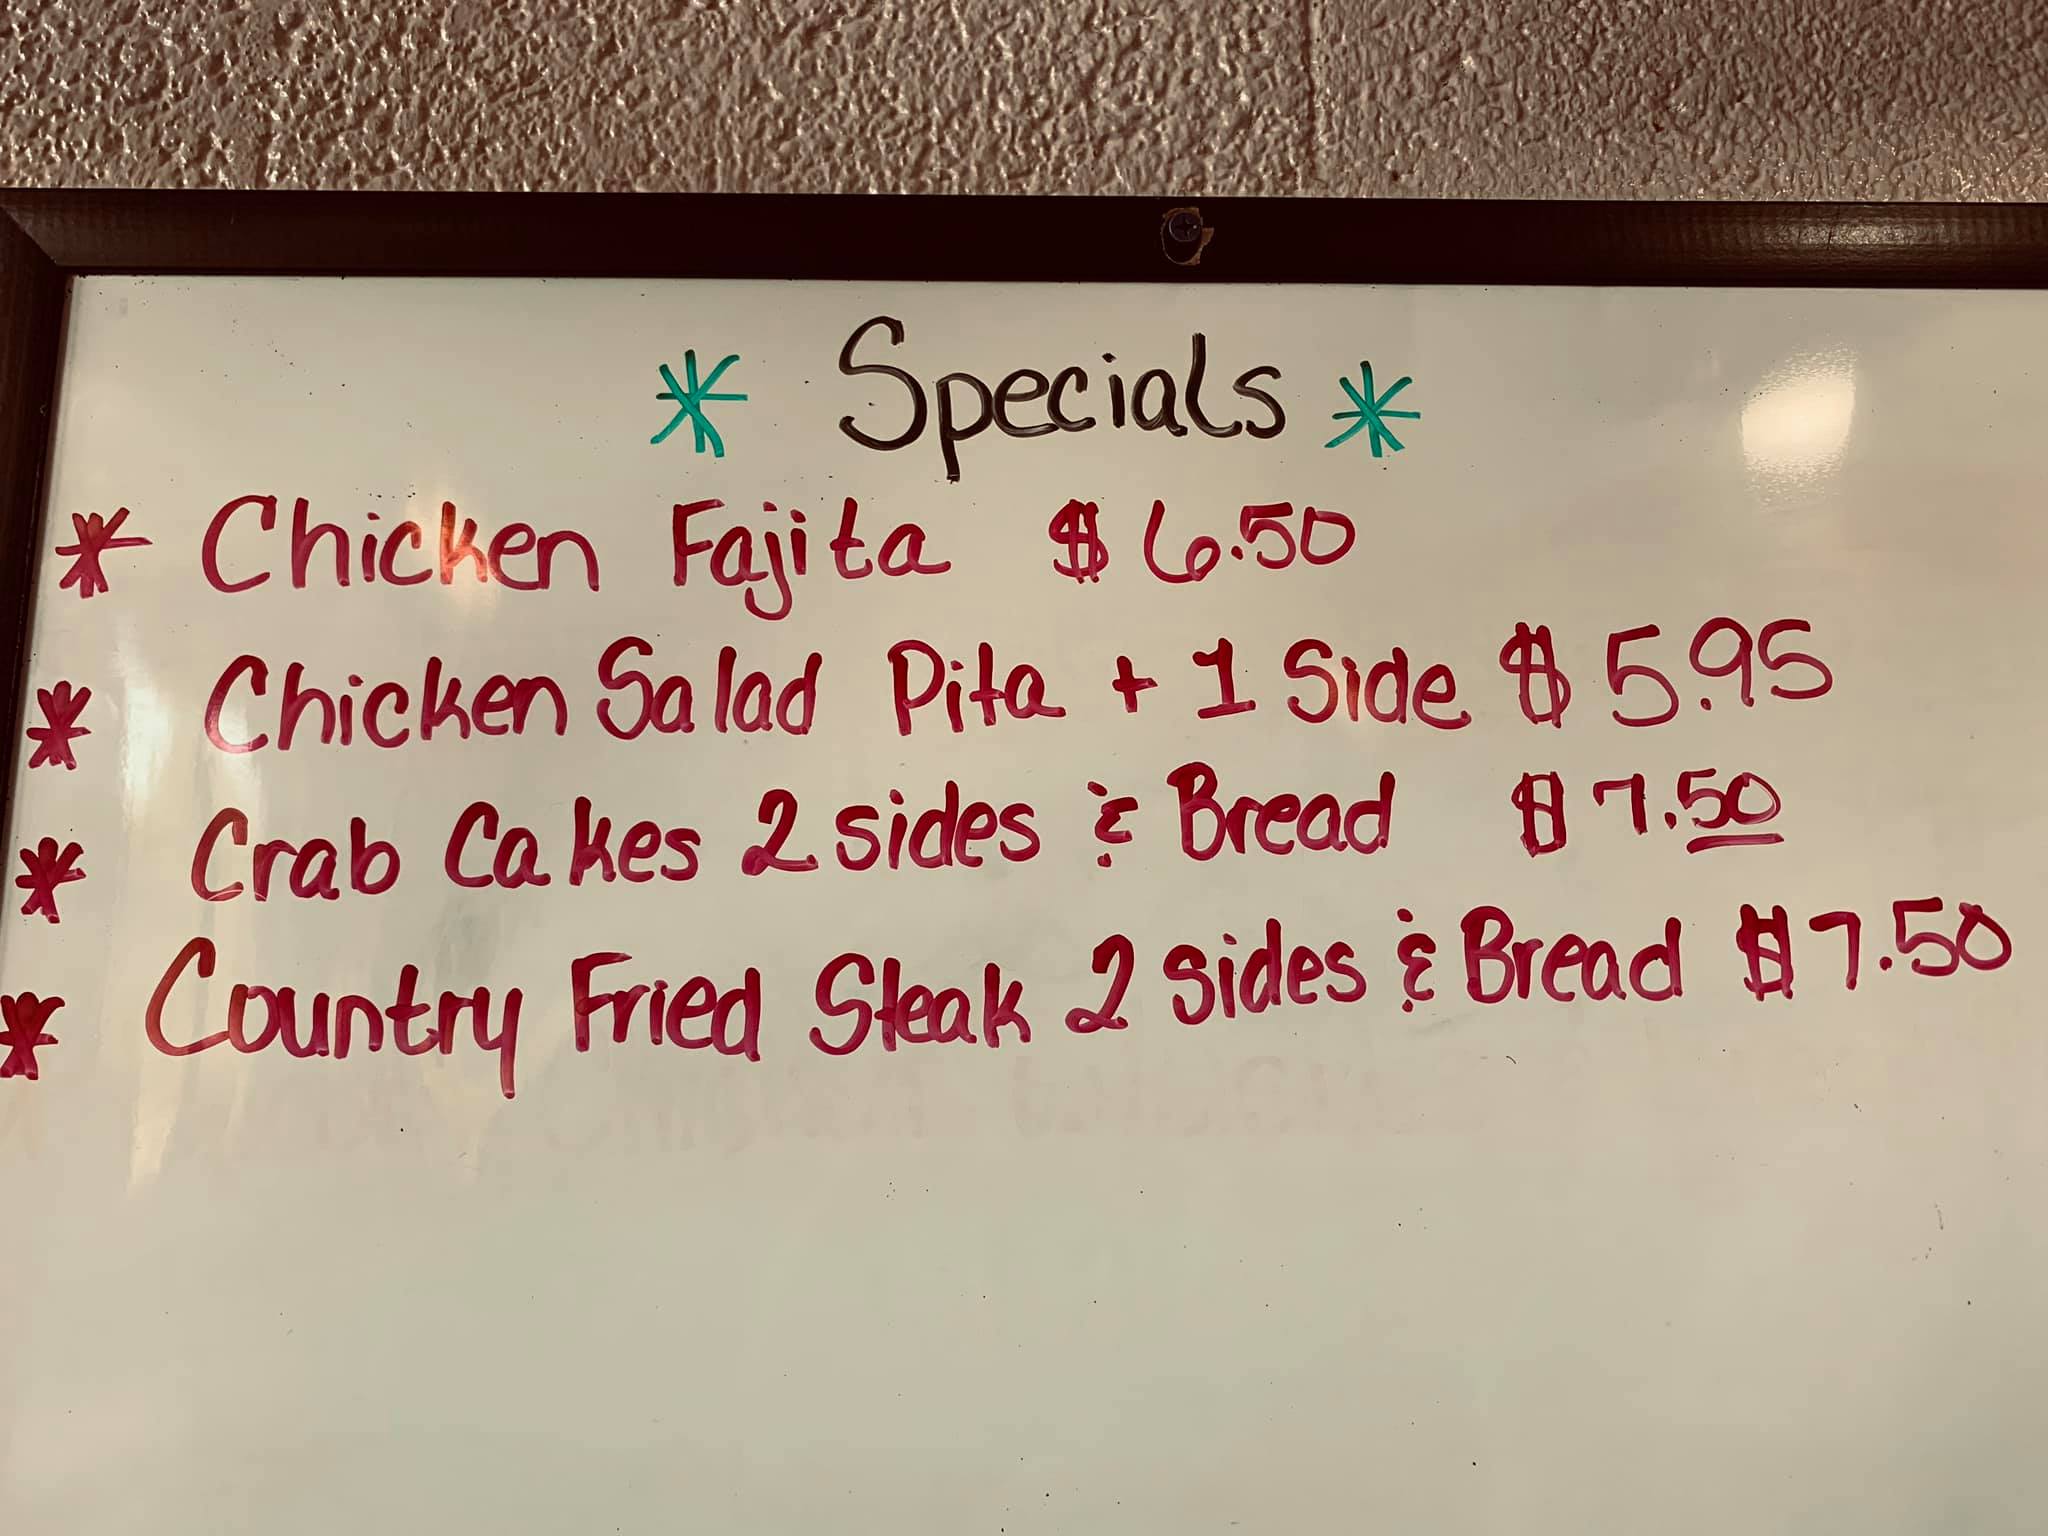 * Specials *
* Chicken Fajita $6.50
* Chicken Salad Pita + 1 Side $5.95
* Crab Cakes 2 sides & Bread $7.50
* Country Fried Steak 2 sides & Bread $7.50